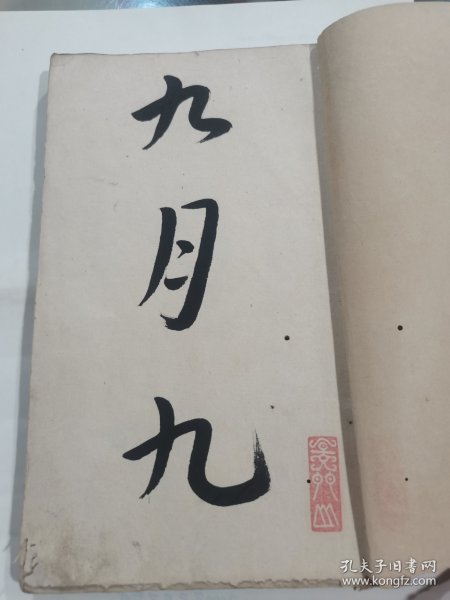 九月九
孔夫子旧书网
www.kongfz.com